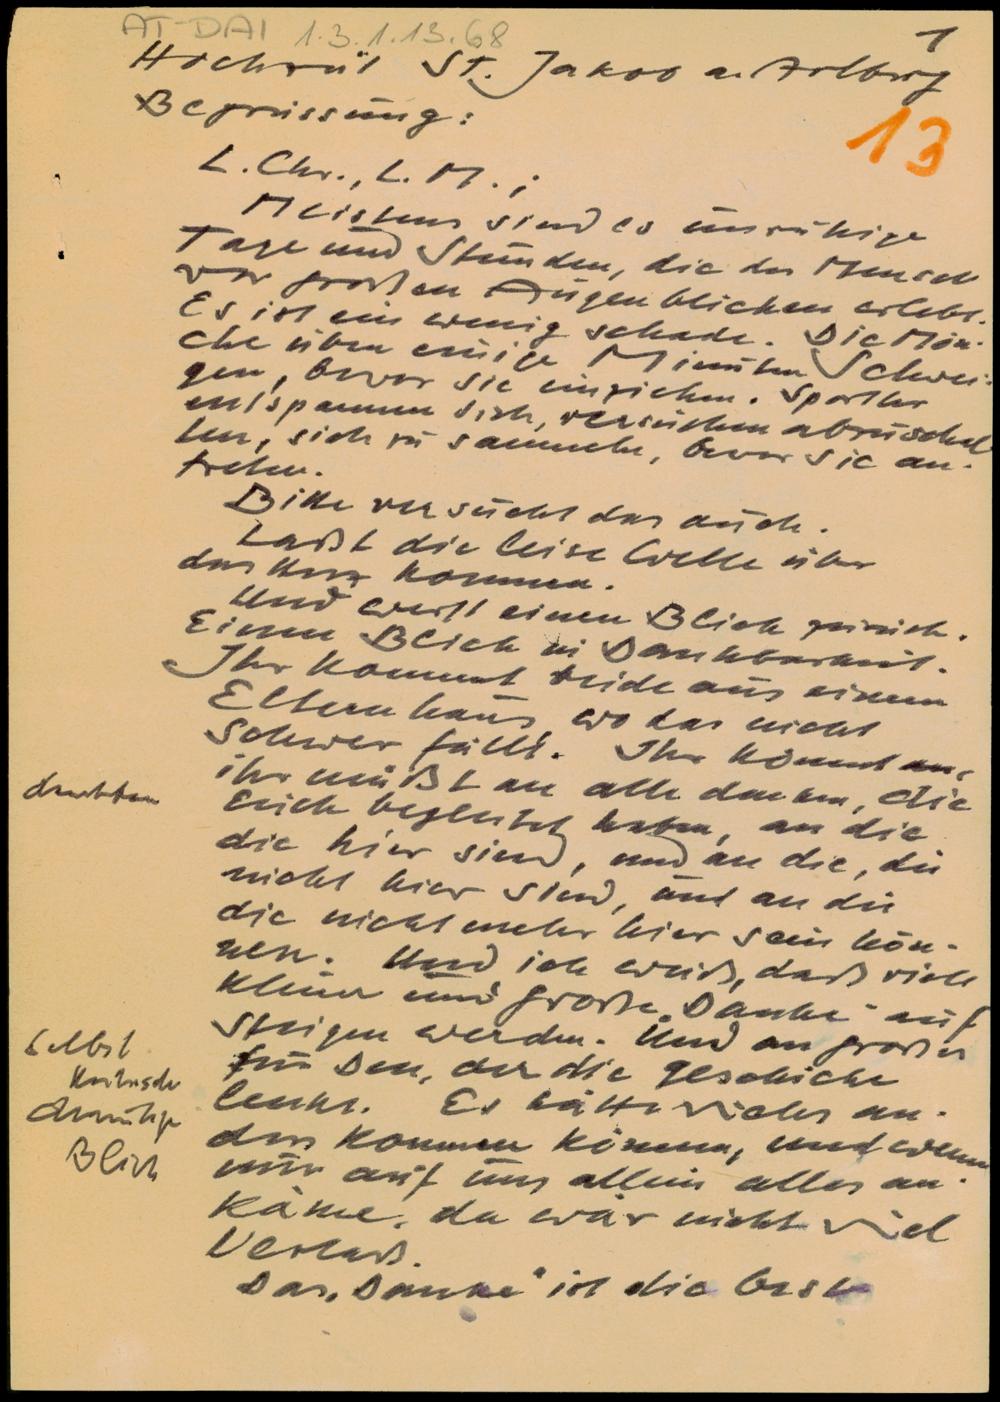 AT-DAI 1.3.1.13.68
1
Hochzeit St. Jakob a. Arlberg
13
Begrüssung:
L. Chr., L. M.;
Meistens sind es unruhige
Tage und Stunden, die der Mensch
vor großen Augenblicken erlebt.
Es ist ein wenig schade. Die Mön-
che üben einige Minuten Schwei-
gen, bevor sie einziehen. Sportler
entspannen sich, versuchen abzuschal
ten, sich zu sammeln, bevor sie an-
treten.
Bitte versucht das auch.
Laßt die leise Welle über
das Herz kommen.
Und werft einen Blick zurück.
Einen Blick in Dankbarkeit.
Ihr kommt beide aus einem
Elternhaus, wo das nicht
schwer fällt. Ihr könnt an,
ihr müßt an alle denken, die
Euch begleitet haben, an die
die hier sind, und an die, die
nicht hier sind, und an die
die nicht mehr hier sein kön-
nen. Und ich weiß, daß viele
kleine und große „Danke" auf
steigen werden. Und an großes
für Den, der die Geschicke
lenkt. Es hätte vieles an-
ders kommen können, und wenn
nur auf uns allein alles an-
käme, da wär nicht viel
Verlaß.
Das „Danke" ist die beste
Selbst
kritische
demütige
Blick